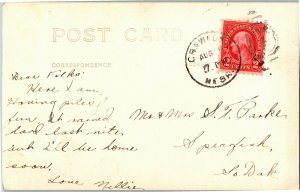 POST CARD
CORRESPONDENCE
CRAWFORD
AUG
NEBR
CENTS
Dear Folks:
Here I am
Having piles of
fun. It rained
hard last nite.
but I'll be home
soon.
Love Nellie
Mr & Mrs S. T. Parke
Spearfish
So Dak